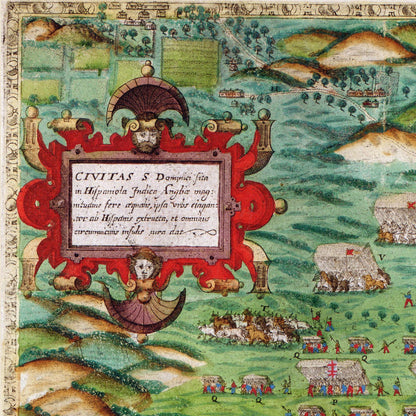 CIVITAS S Dominici sita
in Hispaniola Indica Angliæ mag:
nitudine fere æqualis, ipsa vrbs elegan:
ter ab Hispanis extructa, et omnibus
circumuicinis insulis iura dat
V
Q
Q
Q